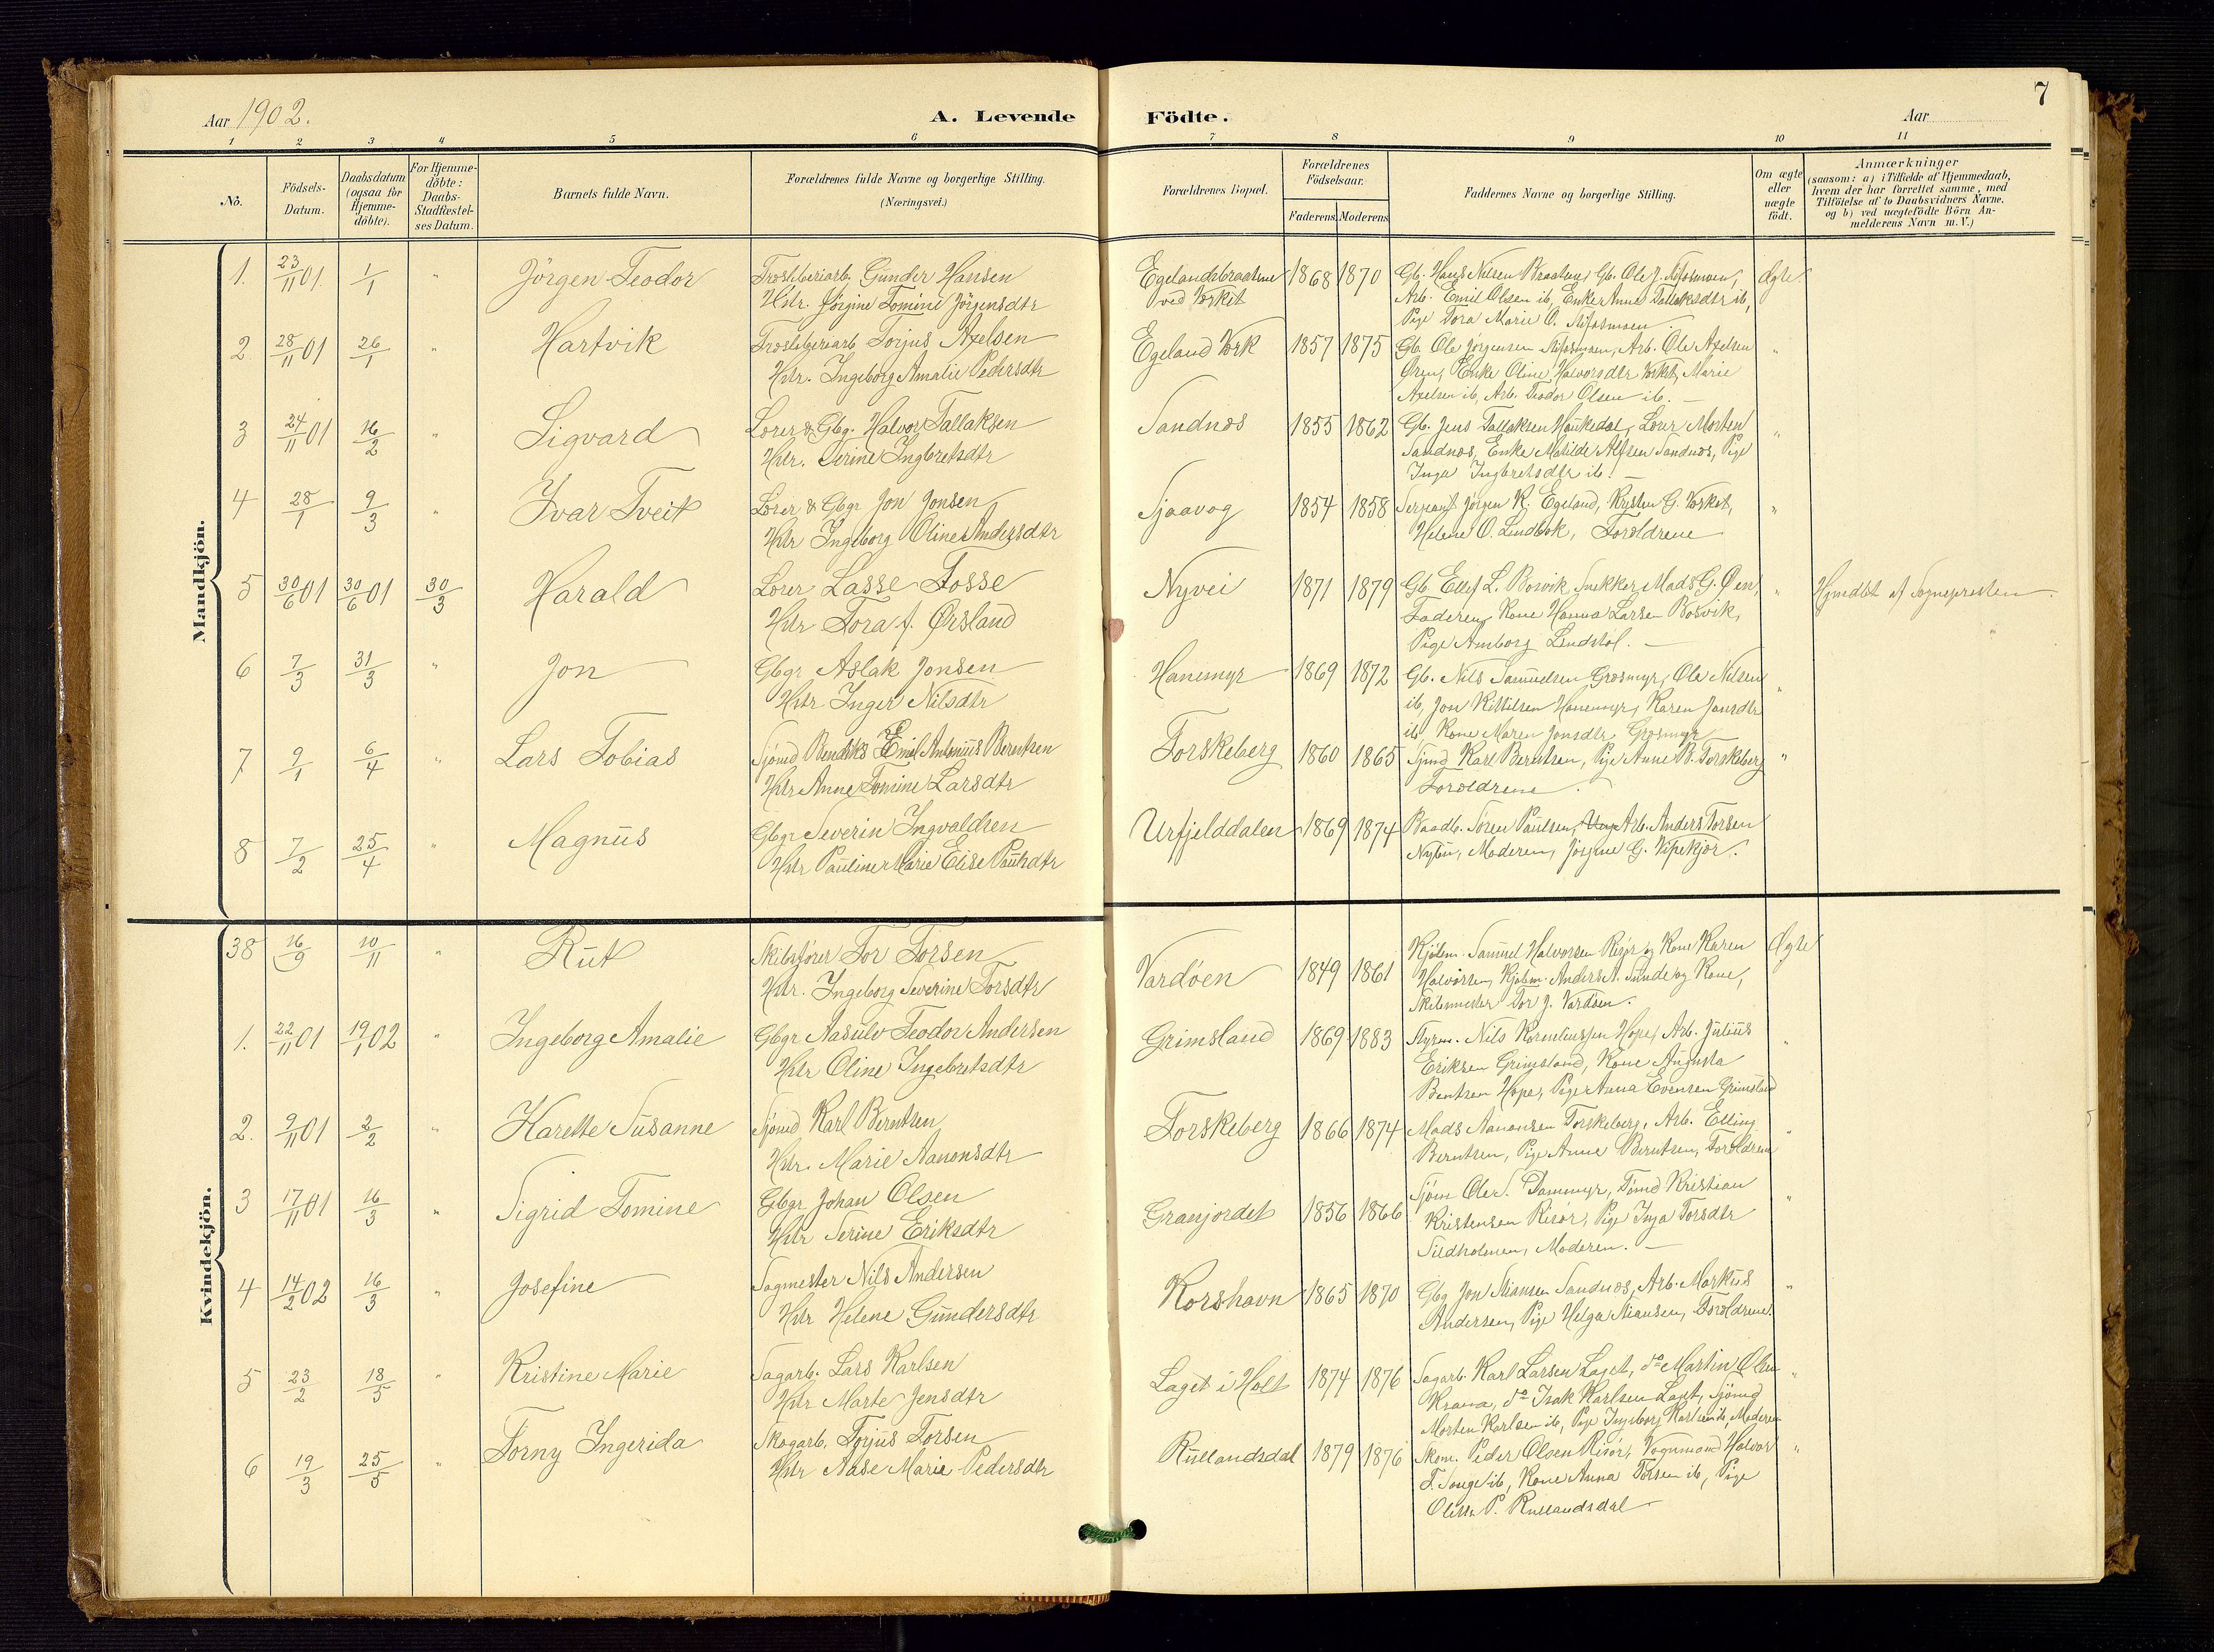 7
Aar 1902.
A. Levende Födte.
Aar
1 2 3 4 5 6 7 8 9 10 11
No.
Födsels-Datum.
Daabsdatum (ogsaa for Hjemme-döbte).
For Hjemme-döbte: Daabs-Stadfæstel-ses Datum.
Barnets fulde Navn.
Forældrenes fulde Navne og borgerlige Stilling.
(Næringsvei.)
Forældrenes Bopæl.
Forældrenes Födselsaar.
Faderens Moderens
Faddernes Navne og borgerlige Stilling.
Om ægte eller uægte födt.
Anmærkninger
(saasom: a) i Tilfælde af Hjemmedaab,
hvem der har forrettet samme, med
Tilföielse af to Daabsvidners Navne.
og b) ved uægtefödte Börn An-
melderens Navn m. V.)
Mandkjön.
1. 23/11 01. 1/1 " Jörgen Teodor Gunder Hansen
Hstr. Jörgine Tomine Jörgensdtr
Egelandsbraatene ved Vrkit 1868 1870 Gb. Hans Nilsen Braaten, Gb. Ole J. Ægte.
Arb. Emil Olsen ib, Enke Anne Tallaksdtr ib,
Pige Tora Marie O.
2. 28/11 01 26/1 " Hartvik Torjus Axelsen
Hstr. Ingeborg Amalie Pedersdtr
Egeland Vrk 1857 1875 Gb. Ole Jörgensen Arb. Ole Axelsen "
Enke Oline Halvorsdtr Vrkit, Marie
Axelsen ib, Arb. Teodor Olsen ib.
3 24/11 01 16/2 " Sigvard Lærer & Gbg. Halvor Tallaksen
Hstr. Serine Ingbretsdtr
Sandnæs 1855 1862 Gb. Jens Tallaksen Haukedal, Lærer Morten "
Sandnæs, Enke Matilde Alfsen Sandnæs, Pige
Inga Ingbretsdtr ib.
4 28/1 9/3 " Ivar Tveit Lærer & Gbgr Jon Jonsen
Hstr Ingeborg Oline Andersdtr
Sjaavag 1854 1858 Sergeant Jörgen K. Egeland, Krysten G. Vrkit, "
Helene O. Lindbæk, Forældrene
5 30/6 01 30/6 01 30/3 Harald Lærer Lasse Fosse
Hstr Tora f. Ørsland
Nyvei 1871 1879 Gb. Ellef L. Bosvik, Snekker Mads G. Øen, " Hjmdbt af Sognepresten.
Faderen, Kone Hanna Larsen Bosvik,
Pige Amborg Lindstøl.
6 7/3 31/3 " Jon Gbgr Aslak Jonsen
Hstr Inger Nilsdtr
Hanemyr 1869 1872 Gb. Nils Samuelsen Græsmyr, Ole Nilsen "
ib, Jon Kittilsen Hanemyr, Karen Jonsdtr
ib, Kone Maren Jonsdtr Græsmyr
7 9/1 6/4 " Lars Tobias Sjömd Bendiks Emil Antonius Berntsen
Hstr Anne Tomine Larsdtr
Torskeberg 1860 1865 Sjmd Karl Berntsen, Pige Anne B. Torskeberg "
Forældrene.
8 7/2 25/4 " Magnus Gbgr Severin Ingvaldsen
Hstr Pauline Marie Elise Paulsdtr
Urfjelddalen 1869 1874 Baadb. Søren Paulsen, Arb. Anders Torsen
Moderen, Jörgine G. Vipekjær.
Kvindekjön.
38 16/9 10/11 " Rut Skibsfører Tor Torsen
Hstr. Ingeborg Severine Torsdtr
Vardöen 1849 1861 Kjöbm. Samuel Halvorsen Risör og Kone Karen Ægte
Halvorsen, Kjöbm. Anders A. Sunde og Kone,
Skibsmester Tor J. Vardöen.
1. 22/11 01 19/1 02 " Ingeborg Amalie Gbgr Aasulv Teodor Andersen
Hstr Oline Ingebretsdtr
Grimsland 1869 1883 Styrm. Nils Korneliussen Hope, Arb. Julius "
Eriksen Grimsland, Kone Augusta
Berntsen Hope, Pige Anna Evensen Grimsland
2. 9/11 01 2/2 " Harette Susanne Sjömd Karl Berntsen
Hstr. Marie Aanonsdtr
Torskeberg 1866 1874 Mads Aanonsen Torskeberg, Arb. Elling "
Berntsen, Pige Anne Berntsen, Forældrene
3 17/11 01 16/3 " Sigrid Tomine Gbgr Johan Olsen
Hstr Serine Eriksdtr
Granjordet 1856 1866 Sjöm Ole S. Dammyr, Tömd Kristian "
Kristensen Risør, Pige Inga Torsdtr
Sildholmen, Moderen.
4 14/2 02 16/3 " Josefine Sagmester Nils Andersen
Hstr Helene Gundersdtr
Korshavn 1865 1870 Gbg Jon Stiansen Sandnæs, Arb. Markus "
Andersen, Pige Helga Stiansen, Forældrene.
5 23/2 18/5 " Kristine Marie Sagarb. Lars Karlsen
Hstr Marte Jensdtr
Laget i Holt 1874 1876 Sagarb. Karl Larsen Laget, do Martin Olsen "
Krana, do Isak Karlsen Laget, Sjömd
Morten Karlsen ib, Pige Ingeborg Karlsen ib, Moderen
6 19/3 25/5 " Torny Ingerida Skogarb. Torjus Torsen
Hstr Aase Marie Pedersdtr
Rullandsdal 1879 1876 Skom. Peder Olsen Risør, Vognmand Halvor "
T. Songe ib, Kone Anna Torsen ib, Pige
Olissa P. Rullandsdal